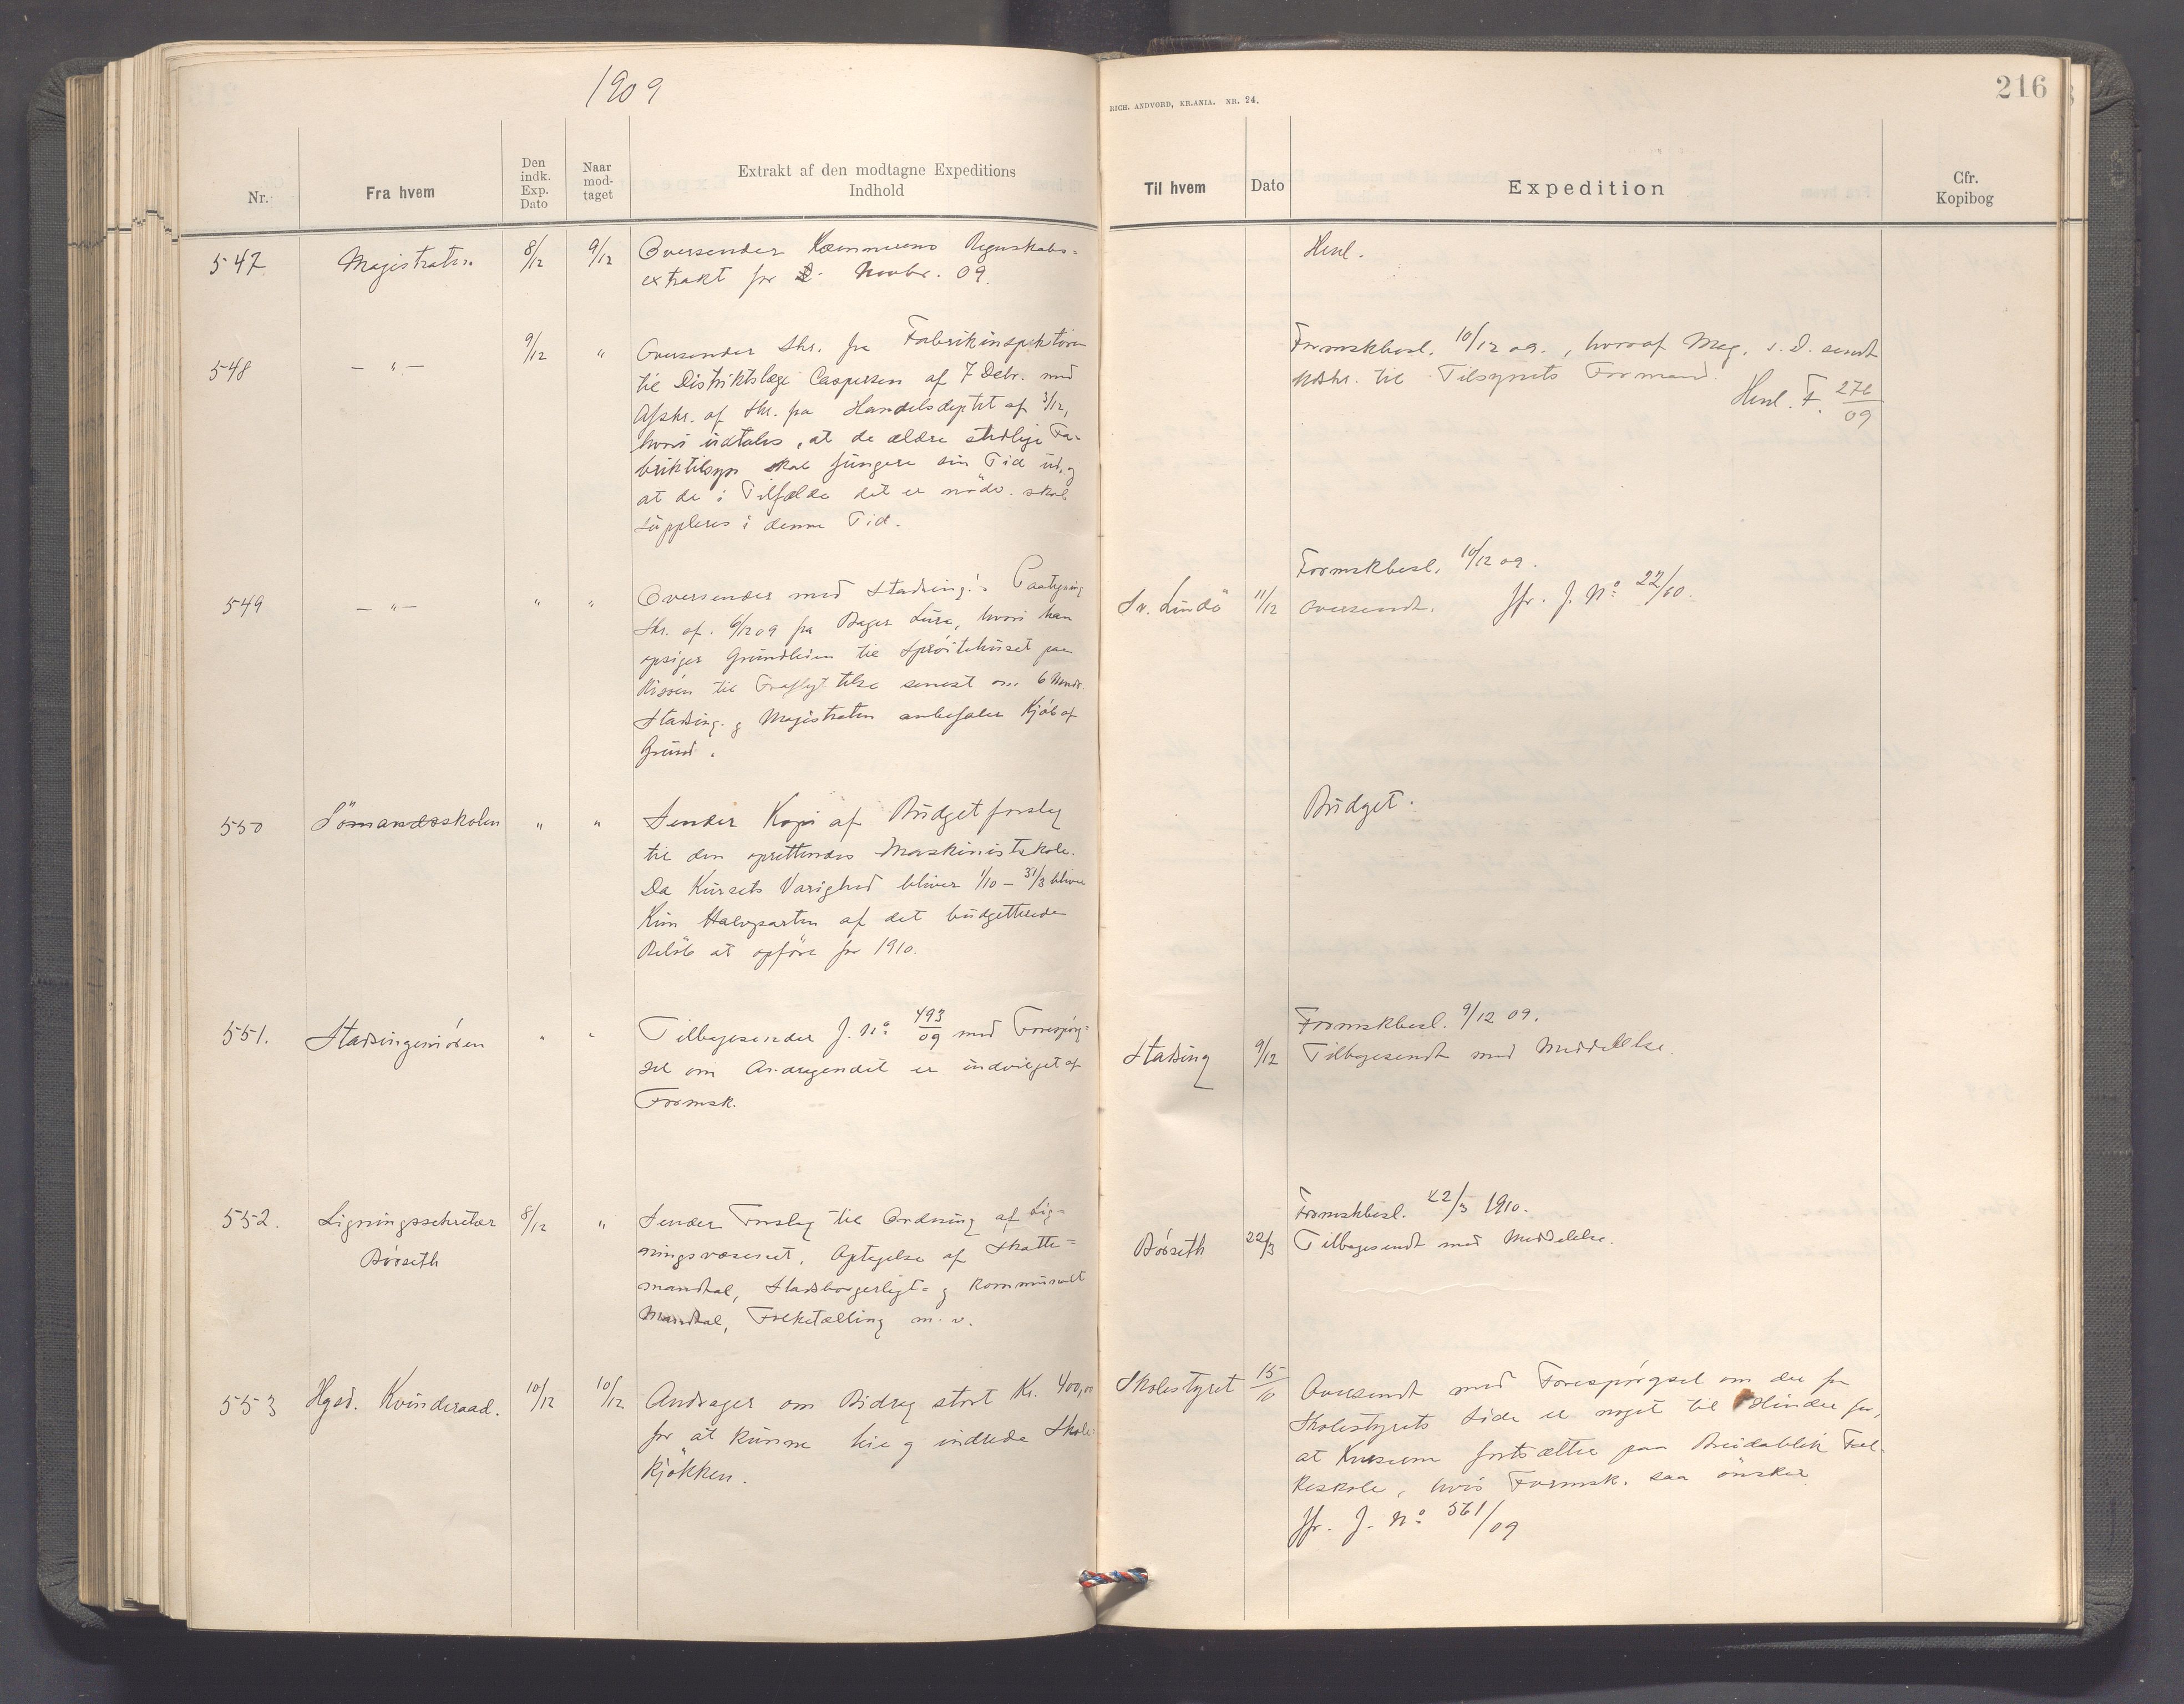 1909
Nr.
Fra hvem
Den
indk.
Exp.
Dato
Naar
mod-
taget
Extrakt af den modtagne Expeditions
Indhold
547
Magistraten
8/12
9/12
Oversender Kæmnerens Regnskabs-
extrakt for Novbr. 09.
548
— " —
9/12
"
Oversender Skr. fra Fabrikinspektören
til Distriktslæge Caspersen af 7 Debr. med
Afskr. af Skr. fra Handelsdeptet af 3/12,
hvori udtales, at de ældre stedlige Fa-
briktilsyn skal fungere sin Tid ud, og
at de i Tilfælde det er nödv. skal
suppleres i denne Tid.
549
— " —
"
"
Oversender med Stadsing.'s Paategning
Skr. af 6/12 09 fra Bager Lura, hvori han
opsiger Grundleien til Spröitehuset paa
Risöen til Fraflyttelse senest om 6 Mndr.
Stadsing. og Magistraten anbefaler Kjöb af
Grund.
550
Sömandsskolen
"
"
Sender Kopi af Budgetforslag
til den oprettendes Maskinistskole.
Da Kursets Varighed bliver 1/10 – 31/3 bliver
Kun Halvparten af det budgetterede
Belöb at opföre for 1910.
551.
Stadsingeniören
"
"
Tilbagesender J. No 493/09 med Forespörg-
sel om Andragendet er indvilget af
Formsk.
552.
Ligningssekretær
Böiseth
8/12
"
Sender Forslag til Ordning af Lig-
ningsvæsenet, Optagelse af Skatte-
mandtal, Stadsborgerligt- og kommunalt
Mandtal, Folketælling m. v.
553
Hgsd. Kvinderaad.
10/12
10/12
Andrager om Bidrag stort Kr. 400,00
for at kunne leie og indrede Skole
kjökken.
RICH. ANDVORD, KR.ANIA. NR. 24.
216
Til hvem
Dato
Expedition
Cfr.
Kopibog
Henl.
Formskbesl. 10/12 09., hvoraf Mag. s. D. sendt
Udskr. til Tilsynets Formand.
Henl. F. 276/09
Formskbesl. 10/12 09.
Sv. Lindö
11/12
Oversendt. Jfr. J. No 22/10.
Budget.
Formskbesl. 9/12 09.
Stadsing
9/12
Tilbagesendt med Meddelelse.
Formskbesl. 22/3 1910.
Böiseth
22/3
Tilbagesendt med Meddelelse.
Skolestyret
15/10
Oversendt med Forespörgsel om der fra
Skolestyrets Side er noget til Hinder for,
at Kurserne fortsætter paa Breidablik Fol-
keskole, hvis Formsk. saa önsker
Jfr. J. No 561/09